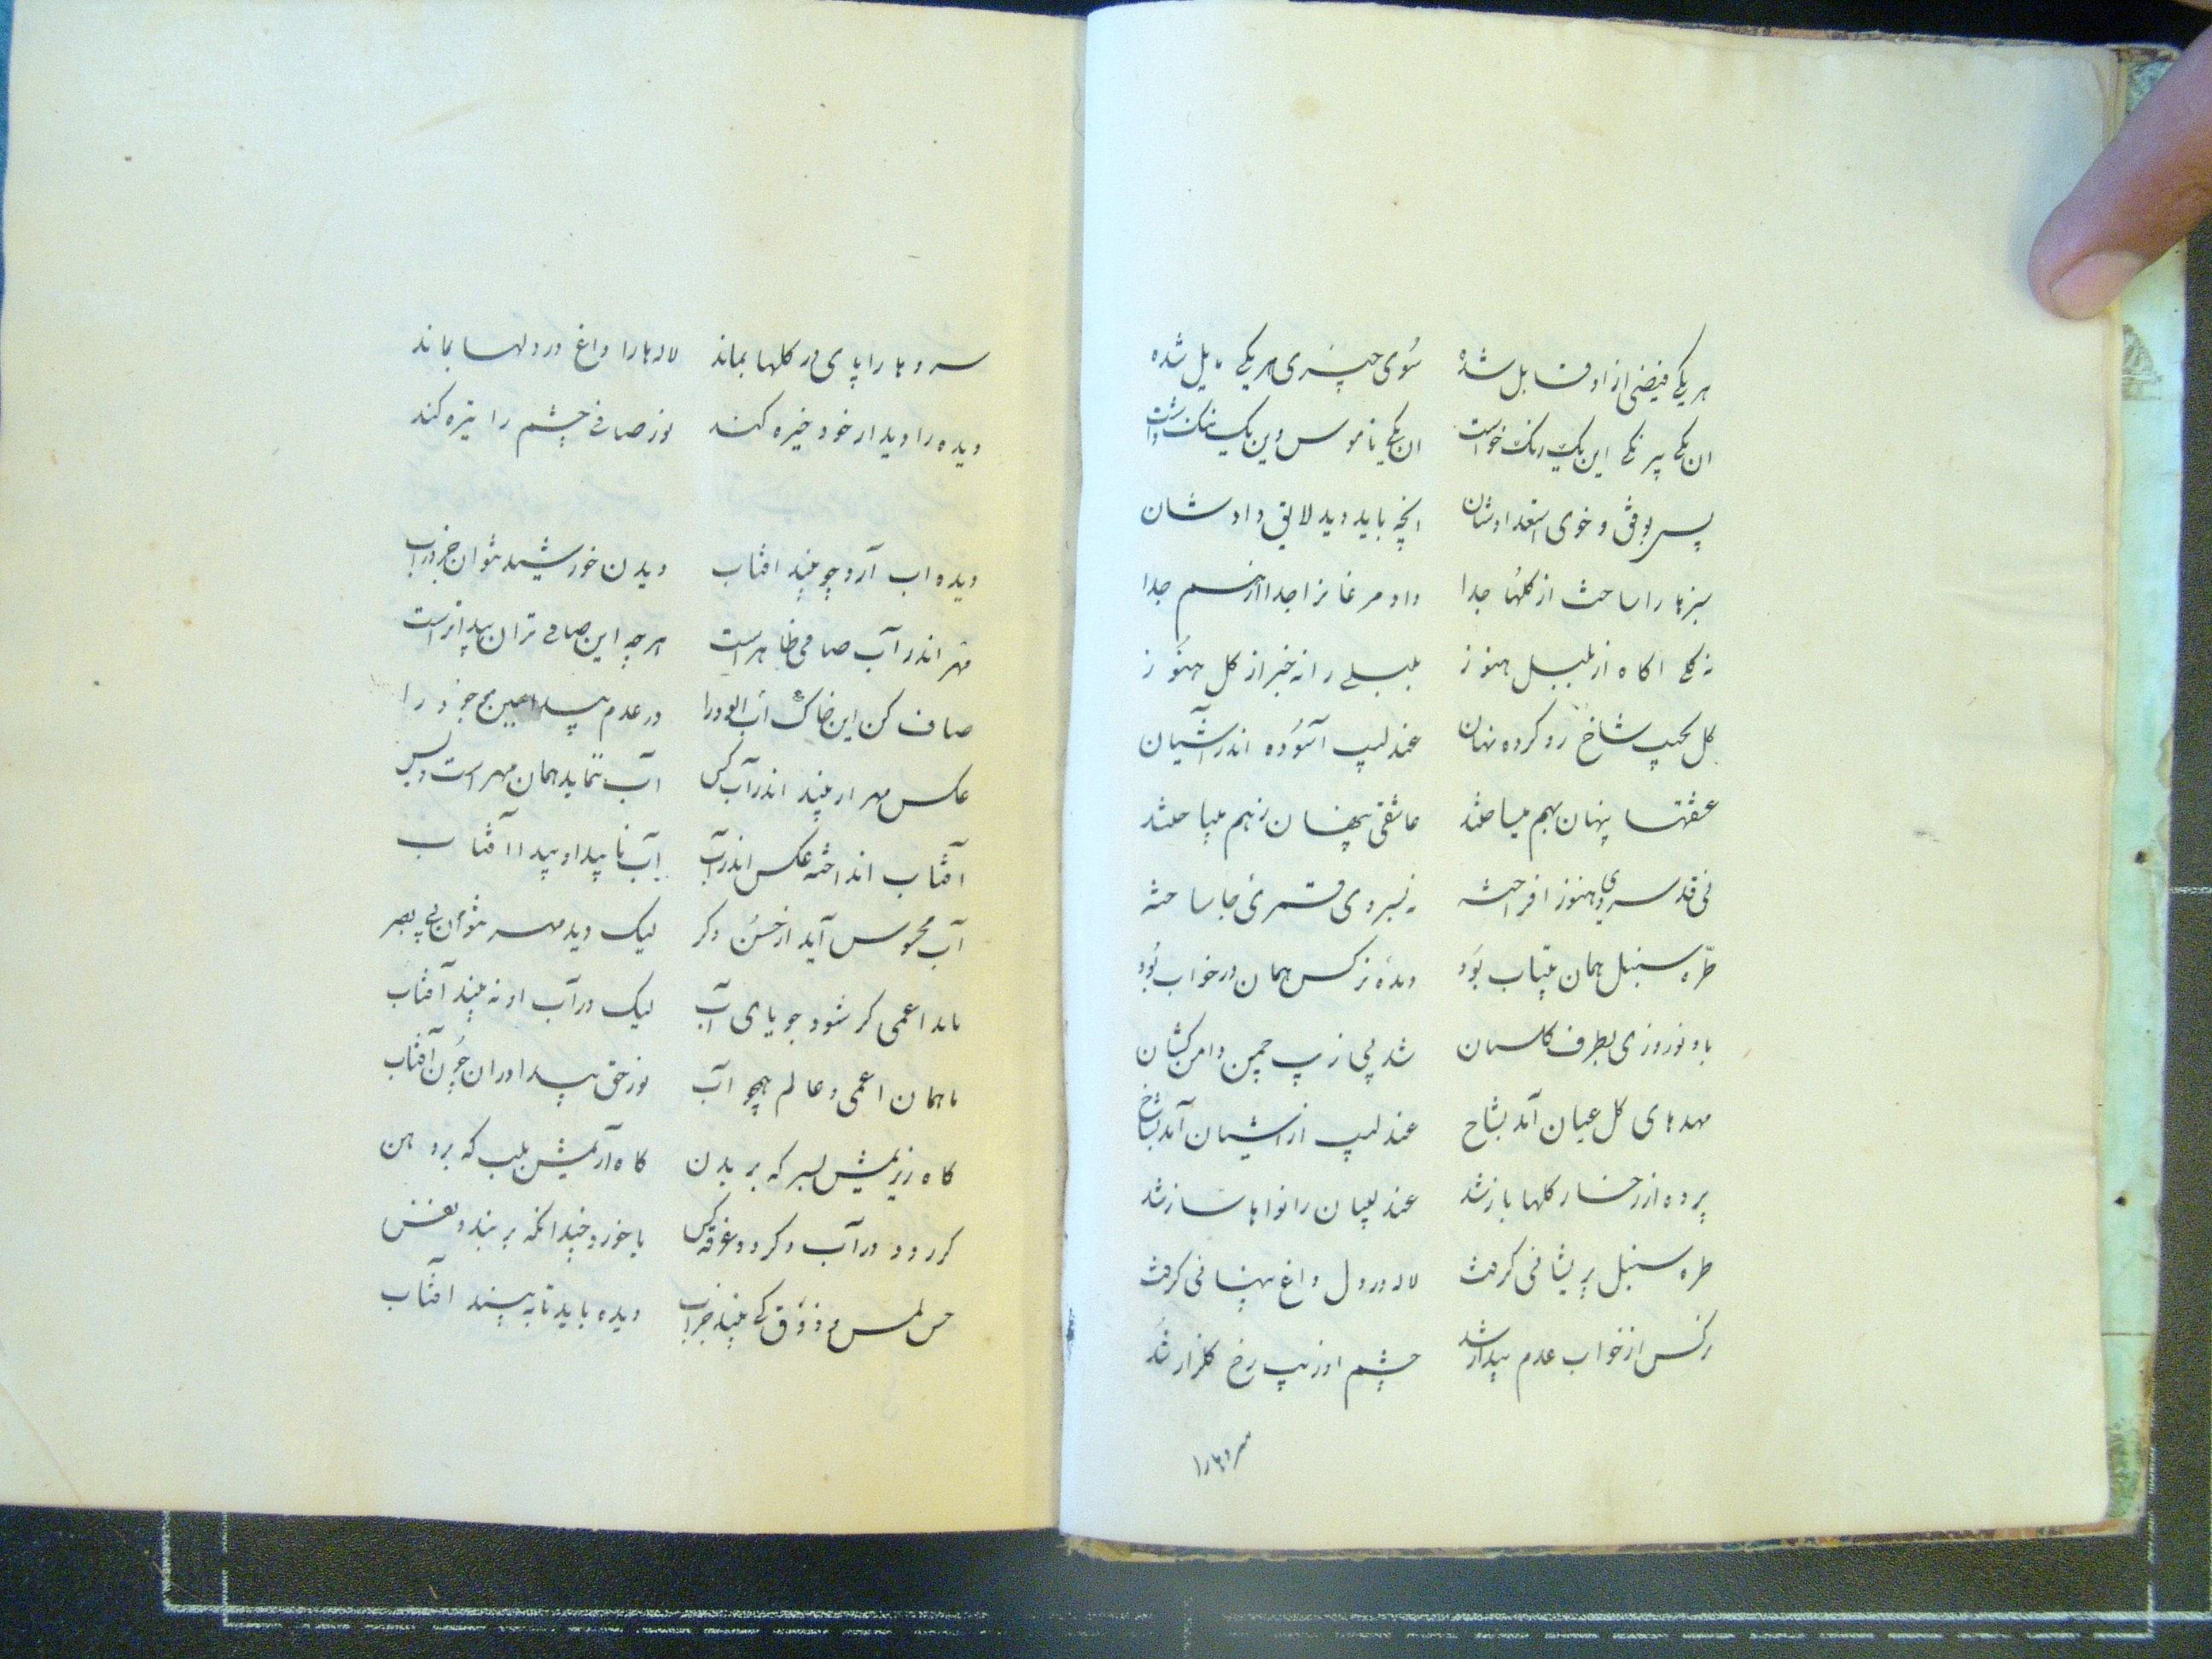 هر یکی فیضی از او قابل شده سوی چیزی هر یکی مایل شده
ان یکی پر نکی این یک رنک خواست ان یکی ناموس وین یک ننک خواست
پس بوفق و خوی استعدادشان انچه باید دید لایق دادشان
سبزها را ساخت از کلها جدا داد مرغانرا جدا از هم جدا
نه کلی اکاه از بلبل هنوز بلبلی را نه خبر از کل هنوز
کل بجیب شاخ رو کرده نهان عندلیب آسوده اندر آشیان
عشقها پنهان بهم میباختند عاشقی پنهان ز هم میباختند
نی قد سروی هنوز افراخته نه بسروی قمری جا ساخته
طره سنبل همان بیتاب بود دیده نرکس همان در خواب بود
باد نوروزی بطرف کلستان شد پی زیب چمن دامن کشان
مهدهای کل عیان آمد بشاخ عندلیب از اشیان آمد بشاخ
پرده از رخسار کلها باز شد عندلیبان را نواها ساز شد
طره سنبل پریشانی کرفت لاله در دل داغ پنهانی کرفت
نرکس از خواب عدم بیدار شد چشم او زیب رخ کلزار شد
سروها را
سروها را پای در کلها بماند لاله‌ها را داغ در دلها بماند
دیده را دیدار خود خیره کند نور صافی چشم را تیره کند
دیده اب آرد چو بیند افتاب دیدن خورشید نتوان جز در اب
مهر اندر آب صافی ظاهر است هر چه این صافی تر ان پیداتر است
صاف کن این خاک آب الود را در عدم پیدا ببین خود را
عکس مهر ار بیند اندر آب کس آب ننماید همان مهر است و بس
آفتاب انداخته عکس اندر آب آب ناپیدا و پیدا آفتاب
آب محسوس آید از حس دکر لیک دید مهر نتوان بی بصر
باید اعمی کر شود جویای آب لیک در آب او نه بیند آفتاب
ما همان اعمی و عالم همچو اب نور حق پیدا در ان چون آفتاب
کاه ریزیمش بسر که بر بدن کاه آریمش بلب که بر دهن
کر رود در آب و کردد غرقه کس یا خورد چندانکه بر بندد نفس
حس لمس و ذوق کی بیند جز اب دیده باید تا به بیند افتاب